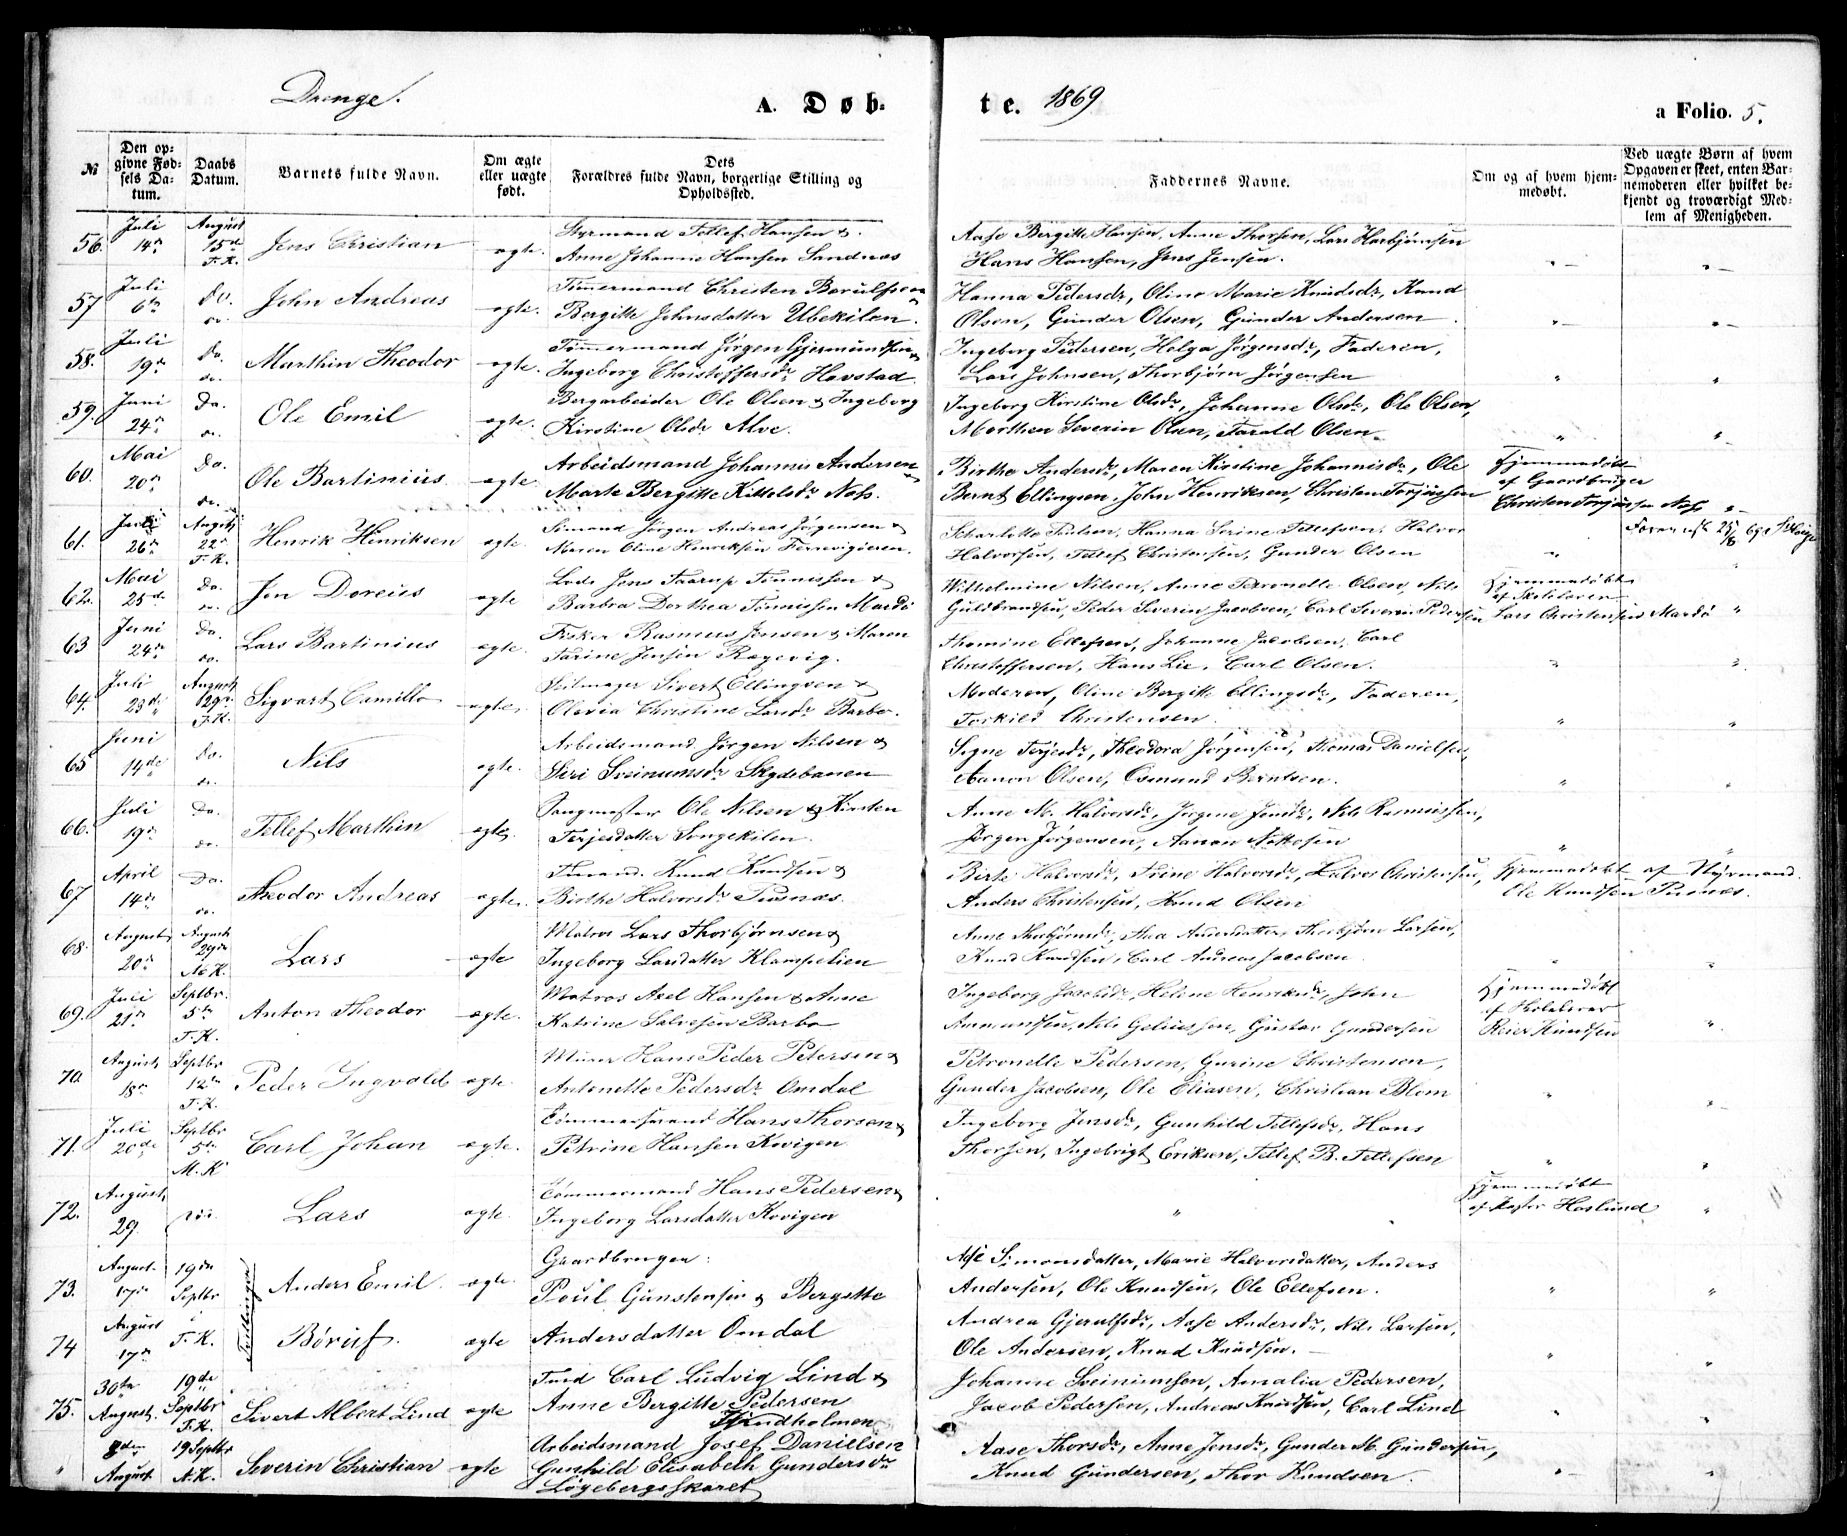 Drenge.
A. Døb-
te. 1869
a Folio. 5.
№
Den op-
givne Fød-
sels Da-
tum.
Daabs
Datum.
Barnets fulde Navn.
Om ægte
eller uægte
født.
Dets
Forældres fulde Navn, borgerlige Stilling og
Opholdssted.
Faddernes Navne.
Om og af hvem hjem-
medøbt.
Ved uægte Børn af hvem
Opgaven er skeet, enten Bar-
nemoderen eller hvilket be-
kjendt og troværdigt Med-
lem af Menigheden.
56. Juli 14de August 15de F.K. Jens Christian ægte.
Styrmand Tellef Hansen &
Anne Johanne Hansen Sandnæs
Aase Bergitte Hansen, Anne Thorsen, Lars
Hans Hansen, Jens Jensen.
57 Juli 6te Do. do. John Andreas ægte.
Tømmermand Christen Børulfsen
Bergitte Johnsdatter Ubekilen.
Hanna Pedersdr, Oline Marie Knudsdr, Knud
Olsen, Gunder Olsen, Gunder Andersen
58. Juli 19de Do. do. Marthin Theodor ægte.
Tømmermand Jørgen Gjermundsen &
Ingeborg Christoffersdr Havstad
Ingeborg Pedersen, Helga Jørgensdr, Faderen,
Lars Johnsen, Thorbjørn Jørgensen
59. Juni 24de Do. do. Ole Emil ægte.
Bergarbeider Ole Olsen & Ingeborg
Kirstine Olsdr Alve.
Ingeborg Kirstine Olsdr, Johanne Olsdr, Ole Olsen,
Morthen Severin Olsen, Tarald Olsen.
60. Mai 20de Do. do. Ole Bartinius ægte.
Arbeidsmand Johannes Andersen
Marte Bergitte Kittelsdr Næs.
Birthe Andersdr, Maren Kirstine Johannesdr, Ole
Bernt Ellingsen, John Henriksen, Christen Terjussen
Hjemmedøbt
af Gaardbruger
Christen Terjussen Næs
61. Juli 26de August 22de F.K. Henrik Henriksen ægte.
Sømand Jørgen Andreas Jørgensen &
Maren Oline Henriksen
Scharlotte Hanna Serine Tellefsen, Halvor
Halvorsen, Tellef Christensen, Gunder Olsen
62. Mai 25de Do. do. Jon Doreius ægte
Lods Jens Taarup Tønnessen &
Barbra Dorthea Tønnissen Mardø
Wilhelmine Nilsen, Anne Petronelle Olsen, Nils
Guldbrandsen, Peder Severin Jacobsen, Carl Severin Pedersen
Hjemmedøbt
af Skolelærer
Lars Christensen Mardø
63 Juni 24de Do. do. Lars Bartinius ægte.
Fisker Rasmus Jensen & Maren
Tarine Jensen Rægevig.
Thomine Ellefsen, Johanne Jacobsen, Carl
Christoffersen, Hans Lie, Carl Olsen.
64. Juli 23de August 29de F.K. Sigvart Camillo ægte.
Seilmager Sivert Ellingsen &
Olevia Christine Larsdr Barbo.
Moderen, Oline Bergitte Ellingsdr, Faderen,
Torkild Christensen.
65 Juni 14de Do. do. Nils ægte.
Arbeidsmand Jørgen Nilsen &
Siri Sveinumsdr Skydebanen
Signe Terjesdr, Theodora Jørgensen, Thomas Danielsen,
Aanon Olsen, Osmund Berntsen.
66. Juli 19de Do. do. Tellef Marthin ægte.
Ole Nilsen & Kirsten
Terjesdatter Songekilen.
Anne M. Halvorsdr, Jørgine Jensdr, Nils Rasmussen,
Jørgen Jørgensen, Aanon
67 April 14de Do. do. Theodor Andreas ægte.
Knud Knudsen &
Birthe Halvorsdr
Berte Halvorsdr, Trine Halvorsdr, Halvor Christensen,
Anders Christensen, Knud Olsen
Hjemmedøbt af Styrmand
Ole Knudsen
68. August 20de August 29de N.K. Lars ægte
Matros Lars Thorbjørnsen &
Ingeborg Larsdatter Klampelien
Anne Thorbjørnsdr, Thea Andersdatter, Thorbjørn Larsen,
Knud Knudsen, Carl Andreas Jacobsen.
69. Juli 21de Septbr. 5te F.K. Anton Theodor ægte.
Matros Axel Hansen & Anne
Katrine Salvesen Barbo
Ingeborg Heline Henriksdr, John
Nils Geliussen, Gustav Gundersen
Hjemmedøbt
af Skolelærer
Reier Knudsen
70. August 18de Septbr 12te F.K. Peder Ingvald ægte.
Murer Hans Peder Petersen &
Antonette Pedersdr Omdal
Petronelle Pedersen, Gurine Christensen,
Gunder Jacobsen, Ole Eliasen, Christian Blom
71. Juli 20de Septbr 5te M.K. Carl Johan ægte.
Tømmermand Hans Thorsen &
Petrine Hansen Kovigen
Ingeborg Jensdr, Gunhild Tellefsdr, Hans
Thorsen, Ingebrigt Eriksen, Tellef B. Tellefsen
72. August 29. Lars ægte.
Tømmermand Hans Pedersen &
Ingeborg Larsdatter Kovigen
Hjemmedøbt
af Pastor Haslund
73. August 17de 19de Septbr Tvillinger Anders Emil. ægte.
Gaardbrugen:
Poul Gunstensen & Bergitte
Aase Simonsdatter, Marie Halvorsdatter, Anders
Andersen, Ole Knudsen, Ole Ellefsen.
74 August 17de F.K. Børulf. ægte
Andersdatter Omdal
Andrea Gjerulfsdr, Aase Andersdr, Nils Larsen,
Ole Andersen, Knud Knudsen.
75. 30te August. 19de Septbr F.K. Sivert Albert Lind ægte
Carl Ludvig Lind &
Anne Bergitte Pedersen
Johanne Sveinumsen, Amalia Pedersen,
Jacob Pedersen, Andreas Knudsen, Carl Lind
" 8de August 19 Septbr N.K. Severin Christian ægte
Arbeidsmand Josef Danielsen
Gunhild Elisabeth Gundersdr
Løgebergsskaret
Aase Thorsdr, Anne Jensdr, Gunder M. Gundersen,
Knud Gundersen, Thor Knudsen.